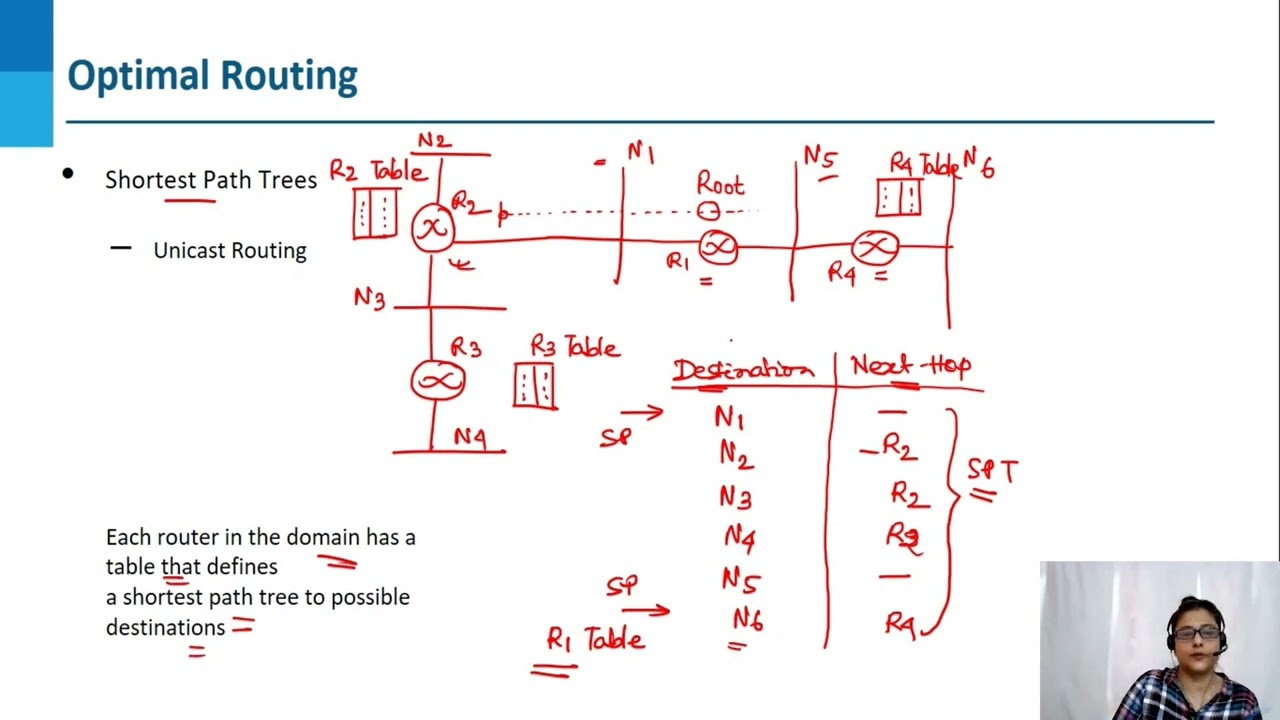 Optimal Routing
• Shortest Path Trees
– Unicast Routing
N2
R2 Table
R2
N1
Root
R1
N5
R4 Table
N6
R4
N3
R3
R3 Table
N4
Destination Next-Hop
SP → N1 —
N2 – R2
N3 R2
N4 R2
N5 —
SP → N6 R4
SPT
R1 Table
Each router in the domain has a
table that defines
a shortest path tree to possible
destinations